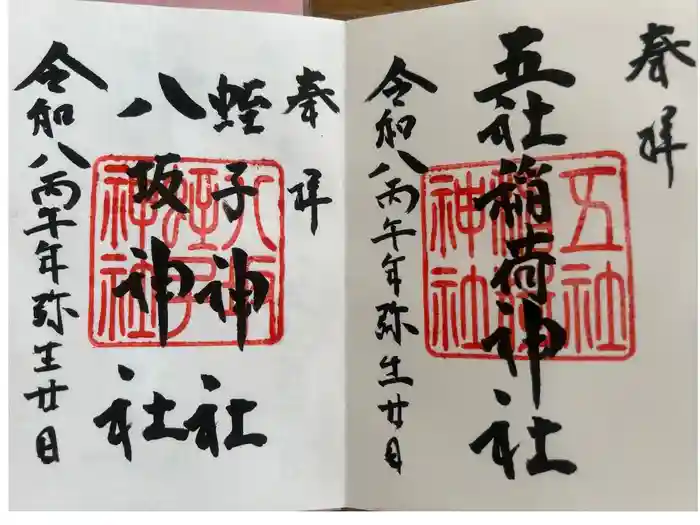 奉拝
五社稲荷神社
令和八丙午年弥生廿日
五社
稲荷
神社
奉拝
蛭子神社
八坂神社
令和八丙午年弥生廿日
八坂
蛭子
神社